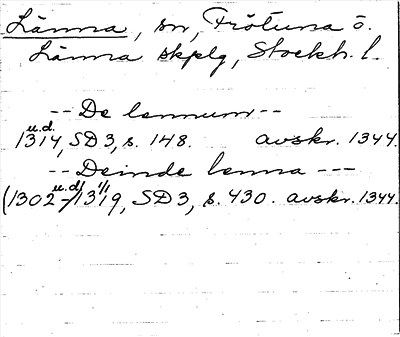 Länna, sn, Frötuna o.
Länna skplg, Stockh. l.
-- De lennum --
u.d.
1314, SD3, s. 148. avskr. 1344.
-- Deinde lenna ---
u.d. 1/1
(1302-/1319, SD3, s. 430. avskr. 1344.